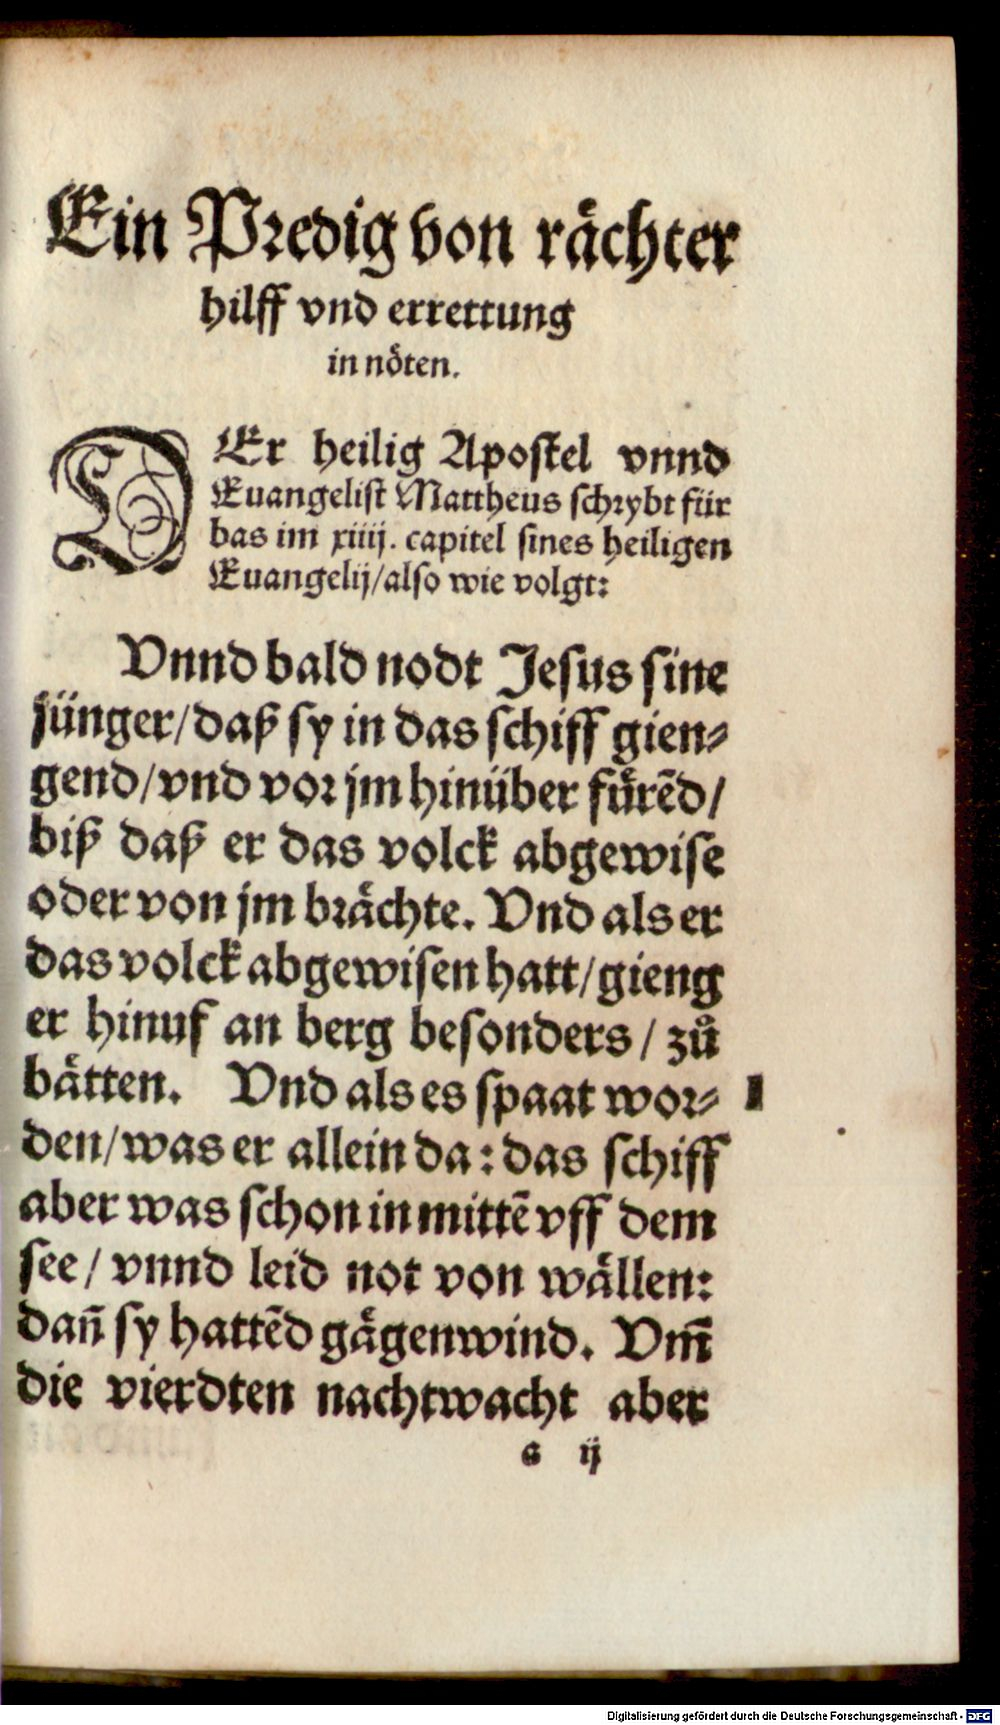 Ein Predig von rächter
hilff vnd errettung
in nöten.
DEr heilig Apostel vnnd
Euangelist Mattheus schrybt für
bas im xiiij. capitel sines heiligen
Euangelij/also wie volgt:
Vnnd bald nodt Jesus sine
jünger/daß sy in das schiff gien⸗
gend/vnd vor jm hinüber fůrēd/
biß daß er das volck abgewise
oder von jm brächte. Vnd als er
das volck abgewisen hatt/gieng
er hinuf an berg besonders/ zů
bätten. Vnd als es spaat wor⸗
den/was er allein da: das schiff
aber was schon in mittē vff dem
see/ vnnd leid not von wällen:
dañ sy hattēd gägenwind. Vm̃
die vierdten nachtwacht aber
a ij
Digitalisierung gefördert durch die Deutsche Forschungsgemeinschaft - DFG